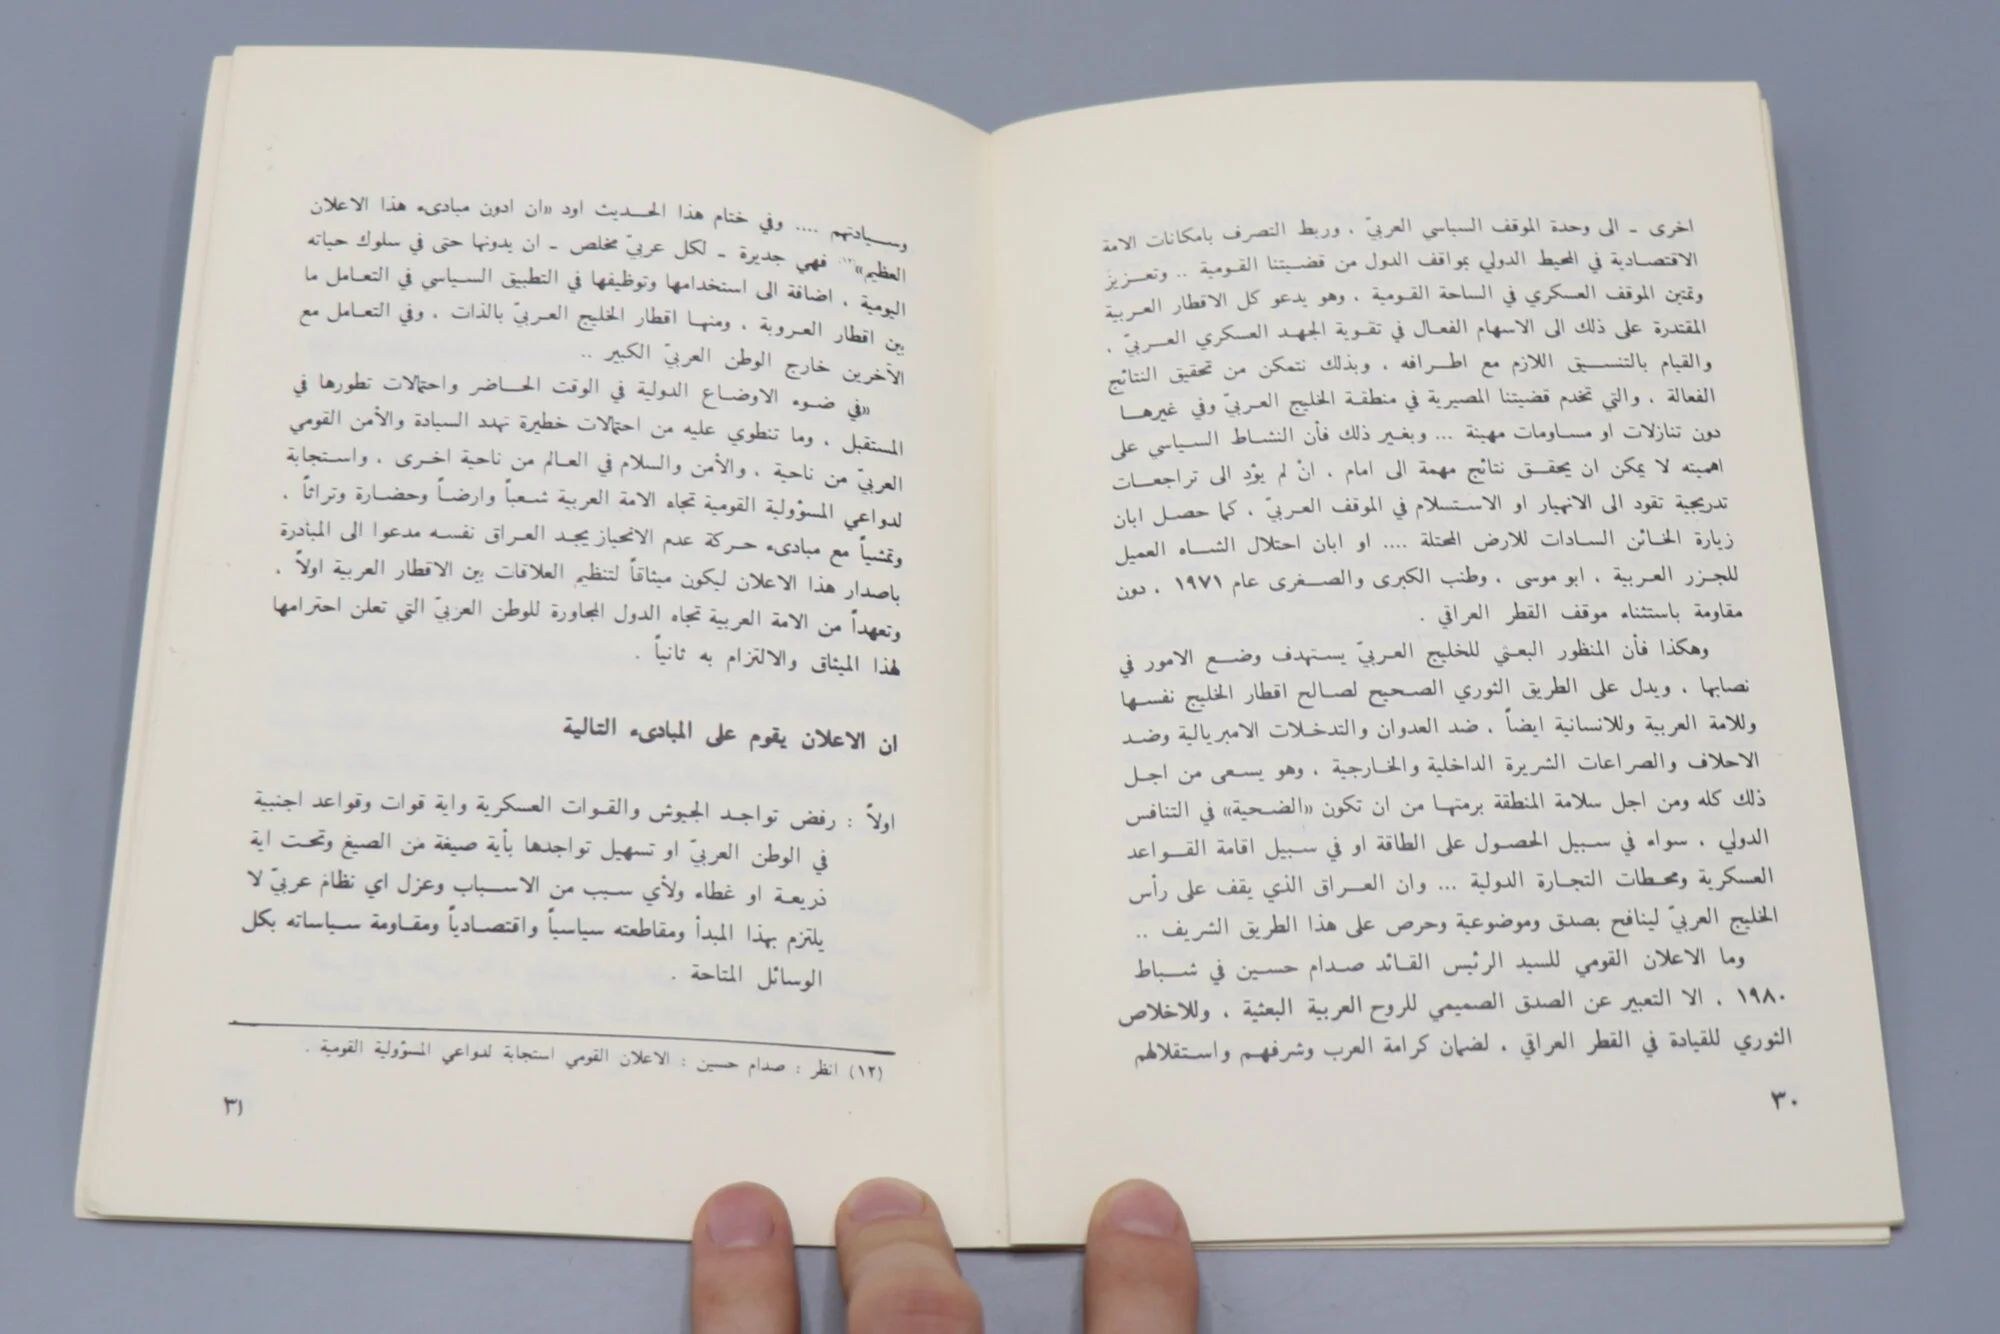 اخرى ـ الى وحدة الموقف السياسي العربيّ ، وربط التصرف بامكانات الامة
الاقتصادية في المحيط الدولي بمواقف الدول من قضيتنا القومية .. وتعزيز
وتمتين الموقف العسكري في الساحة القومية ، وهو يدعو كل الاقطار العربية
المقتدرة على ذلك الى الاسهام الفعال في تقوية الجهد العسكري العربيّ ،
والقيام بالتنسيق اللازم مع اطرافه ، وبذلك نتمكن من تحقيق النتائج
الفعالة ، والتي تخدم قضيتنا المصيرية في منطقة الخليج العربيّ وفي غيرها
دون تنازلات او مساومات مهينة ... وبغير ذلك فأن النشاط السياسي على
اهميته لا يمكن ان يحقق نتائج مهمة الى امام ، انْ لم يؤدِ الى تراجعات
تدريجية تقود الى الانهيار او الاستسلام في الموقف العربيّ ، كما حصل ابان
زيارة الخائن السادات للارض المحتلة .... او ابان احتلال الشاه العميل
للجزر العربية ، ابو موسى ، وطنب الكبرى والصغرى عام ١٩٧١ ، دون
مقاومة باستثناء موقف القطر العراقي .
وهكذا فأن المنظور البعثي للخليج العربيّ يستهدف وضع الامور في
نصابها ، ويدل على الطريق الثوري الصحيح لصالح اقطار الخليج نفسها
وللامة العربية وللانسانية ايضاً ، ضد العدوان والتدخلات الامبريالية وضد
الاحلاف والصراعات الشريرة الداخلية والخارجية ، وهو يسعى من اجل
ذلك كله ومن اجل سلامة المنطقة برمتها من ان تكون «الضحية» في التنافس
الدولي ، سواء في سبيل الحصول على الطاقة او في سبيل اقامة القواعد
العسكرية ومحطات التجارة الدولية ... وان العراق الذي يقف على رأس
الخليج العربيّ لينافح بصدق وموضوعية وحرص على هذا الطريق الشريف ..
وما الاعلان القومي للسيد الرئيس القائد صدام حسين في شباط
١٩٨٠ ، الا التعبير عن الصدق الصميمي للروح العربية البعثية ، وللاخلاص
الثوري للقيادة في القطر العراقي ، لضمان كرامة العرب وشرفهم واستقلالهم
٣٠
وسيادتهم .... وفي ختام هذا الحديث اود «ان ادون مبادىء هذا الاعلان
العظيم»(١٢) فهي جديرة ـ لكل عربيّ مخلص ـ ان يدونها حتى في سلوك حياته
اليومية ، اضافة الى استخدامها وتوظيفها في التطبيق السياسي في التعامل ما
بين اقطار العروبة ، ومنها اقطار الخليج العربيّ بالذات ، وفي التعامل مع
الآخرين خارج الوطن العربيّ الكبير ..
«في ضوء الاوضاع الدولية في الوقت الحاضر واحتمالات تطورها في
المستقبل ، وما تنطوي عليه من احتمالات خطيرة تهدد السيادة والأمن القومي
العربيّ من ناحية ، والأمن والسلام في العالم من ناحية اخرى ، واستجابة
لدواعي المسؤولية القومية تجاه الامة العربية شعباً وارضاً وحضارة وتراثاً ،
وتمشياً مع مبادىء حركة عدم الانحياز يجد العراق نفسه مدعوا الى المبادرة
باصدار هذا الاعلان ليكون ميثاقاً لتنظيم العلاقات بين الاقطار العربية اولاً ،
وتعهداً من الامة العربية تجاه الدول المجاورة للوطن العربيّ التي تعلن احترامها
لهذا الميثاق والالتزام به ثانياً .
ان الاعلان يقوم على المبادىء التالية
اولاً : رفض تواجد الجيوش والقوات العسكرية واية قوات وقواعد اجنبية
في الوطن العربيّ او تسهيل تواجدها بأية صيغة من الصيغ وتحت اية
ذريعة او غطاء ولأي سبب من الاسباب وعزل اي نظام عربيّ لا
يلتزم بهذا المبدأ ومقاطعته سياسياً واقتصادياً ومقاومة سياساته بكل
الوسائل المتاحة .
(١٢) انظر : صدام حسين : الاعلان القومي استجابة لدواعي المسؤولية القومية .
٣١